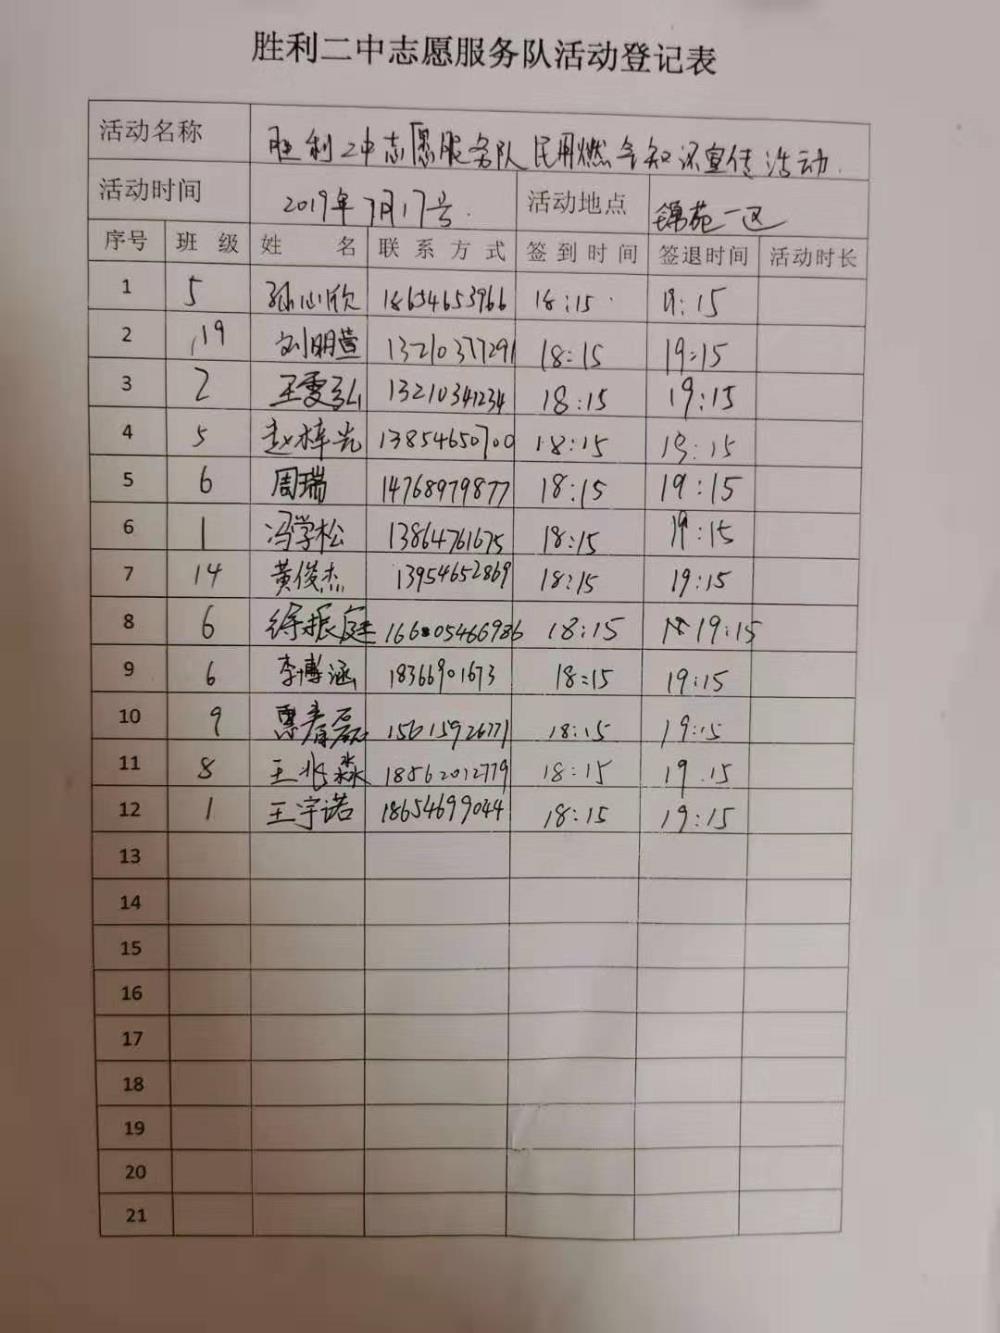 胜利二中志愿服务队活动登记表
活动名称 胜利二中志愿服务队民用燃气知识宣传活动.
活动时间 2019年7月17号. 活动地点 锦苑一区
序号 班级 姓名 联系方式 签到时间 签退时间 活动时长
1 5 孙心欣 18654653966 18:15 19:15
2 19 刘明萱 13210377291 18:15 19:15
3 2 王雯弘 13210341234 18:15 19:15
4 5 赵梓光 13854650700 18:15 19:15
5 6 周瑞 14768979877 18:15 19:15
6 1 冯学松 13864761675 18:15 19:15
7 14 黄俊杰 13954652869 18:15 19:15
8 6 徐振庭 16605466986 18:15 19:15
9 6 李博涵 18366901673 18:15 19:15
10 9 15615926771 18:15 19:15
11 8 王兆淼 18562012779 18:15 19:15
12 1 王宇诺 18654699044 18:15 19:15
13
14
15
16
17
18
19
20
21